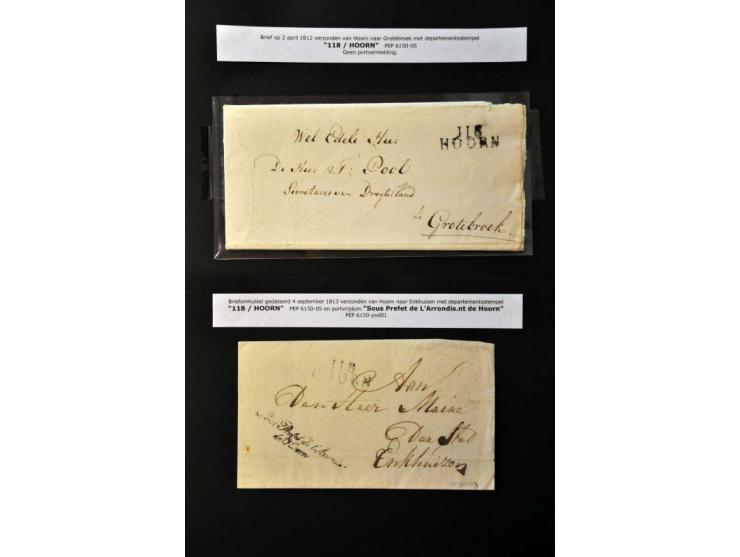 Brief op 2 april 1812 verzonden van Hoorn naar Grotebroek met departementsstempel
"118 / HOORN" PEP 6150-05
Geen portvermelding.
118
HOORN
Wel Edele Heer
De Heer Pool
Secretaris van Dregterland
te
Grotebroek
Briefomhulsel gedateerd 4 september 1813 verzonden van Hoorn naar Enkhuizen met departementsstempel
"118 / HOORN" PEP 6150-05 en portvrijdom "Sous Prefet de L'Arrondis.nt de Hoorn"
PEP 6150-pvd01
118
HOORN
Aan
Den Heer Maire
Der Stad
Enkhuizen
Sous Prefet de L'Arrondis
de Hoorn